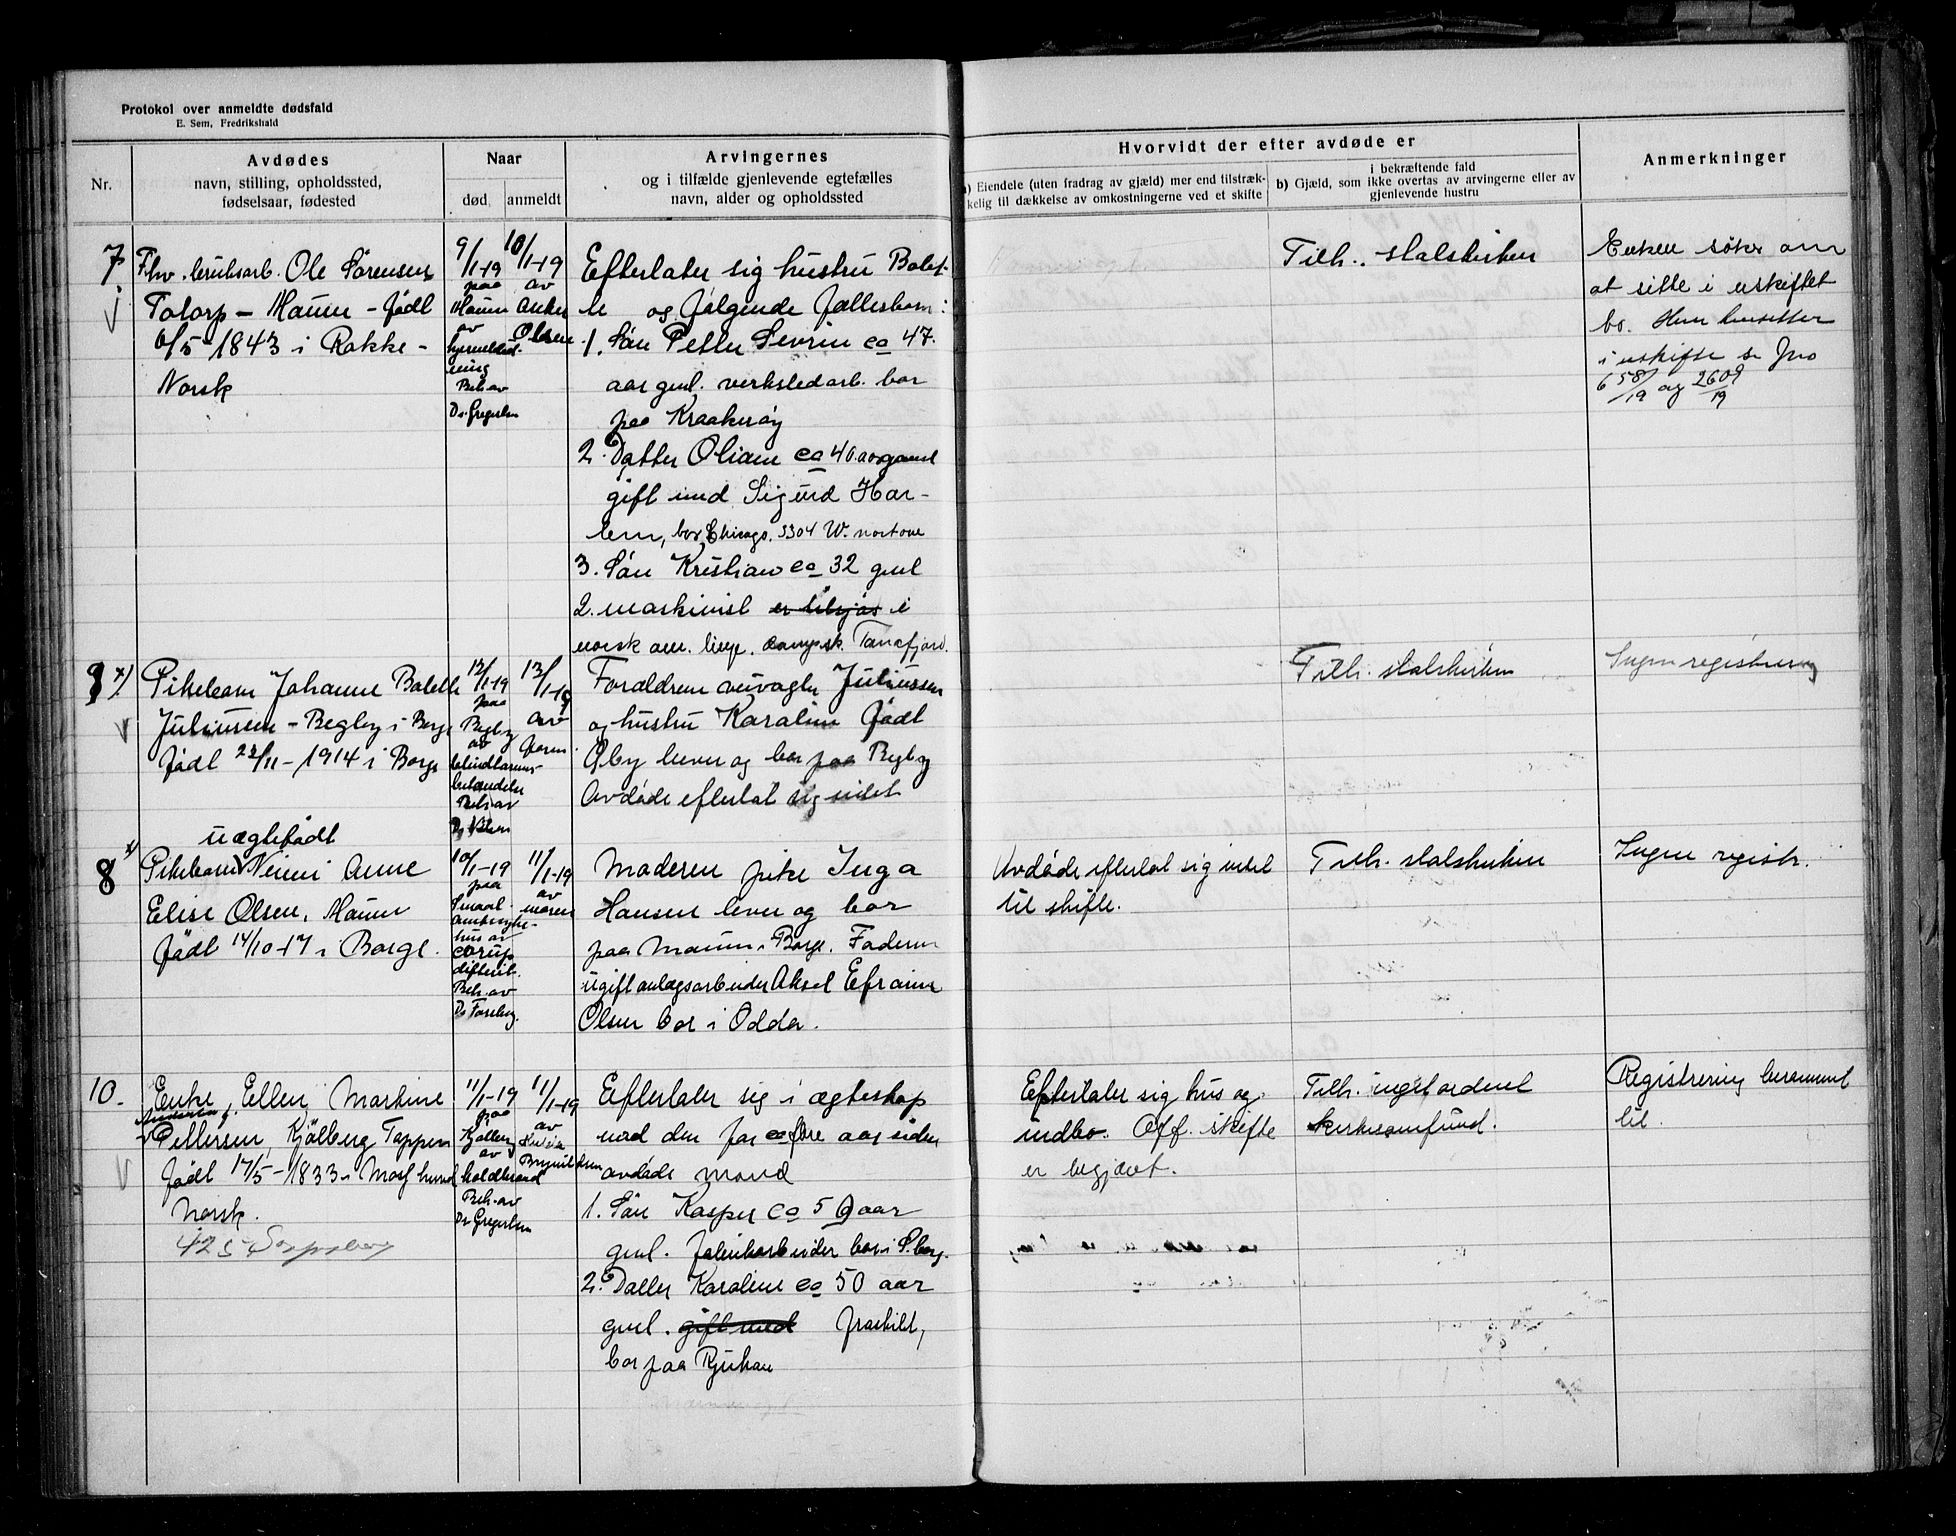 Protokol over anmeldte dødsfald
E. Sem, Fredrikshald
Nr.
Avdødes
navn, stilling, opholdssted,
fødselsaar, fødested
Naar
død
anmeldt
Arvingernes
og i tilfælde gjenlevende egtefælles
navn, alder og opholdssted
Hvorvidt der efter avdøde er
a) Eiendele (uten fradrag av gjæld) mer end tilstræk-
kelig til dækkelse av omkostningerne ved et skifte
i bekræftende fald
b) Gjæld, som ikke overtas av arvingerne eller av
gjenlevende hustru
Anmerkninger
7
Fhv. bruksarb. Ole Sørensen
Torp - Haum - født
6/5 - 1843 i Rakke -
Norsk
9/1-19
paa
av
Beh. av
Dr. Gregersen
10/1-19
av
Olsen
Efterlater sig hustru Bolet-
te og følgende fællesbarn:
1. Søn Petter Sevrin ca 47
aar gml. verkstedarb. bor
paa Kraakerøy
2. Datter Oliane ca 40 aar gammel
gift med Sigurd Har-
lem, bor Chicago. 3304 W.
3. Søn Kristian ca 32 gml
2. maskinist er tilsjøs i
norsk am. linje. dampsk. Tanafjord.
Tilh. statskirken
Enken søker om
at sitte i uskiftet
bo. Hun hensitter
i uskifte se Jno
658/19 og 2609/19
9 x)
Pikebarn Johanne Bolette
Juliussen - Begby i Borge
født 22/11 - 1914 i Borge
12/1-19
paa
Begby
av
blindtarms-
betændelse
Beh. av
13/1-19
av
faren
Forældrene veivogter Juliussen
og hustru Karoline født
Øby lever og bor paa Begby
Avdøde efterlot sig intet
Tilh. statskirken
Ingen registrering
8 x)
uægtefødt
Pikebarn Neimi Anne
Elise Olsen, Haum
født 14/10-17 i Borge.
10/1-19
paa
Smaal.
amtssyke-
hus av
corup
difterit.
Beh. av
Dr. Forsberg.
11/1-19
av
moren
Moderen pike Inga
Hansen lever og bor
paa Haum i Borge. Faderen
ugift anlægsarbeider Aksel Efraim
Olsen bor i Odda.
Avdøde efterlot sig intet
til skifte.
Tilh. statskirken
Ingen registr.
10.
Enke, Ellen Martine
Pettersen, Kjølberg Toppen
født 17/5 - 1833 i
Norsk.
425 Sarpsborg
11/1-19
paa
Kjølberg
av
koldbrand
Beh. av
Dr. Gregersen
11/1-19
av
Brynildsen
Efterlater sig i ægteskap
med den for ca fire aar siden
avdøde mand
1. Søn Kasper ca 59 aar
gml. fabrikarbeider bor i S.borg.
2. Datter Karoline ca 50 aar
gml. gift med fraskilt,
bor paa Rjukan
Efterlater sig hus og
indbo. Off. skifte
er begjært.
Tilh. intet ordnet
kirkesamfund.
Registrering berammet
til